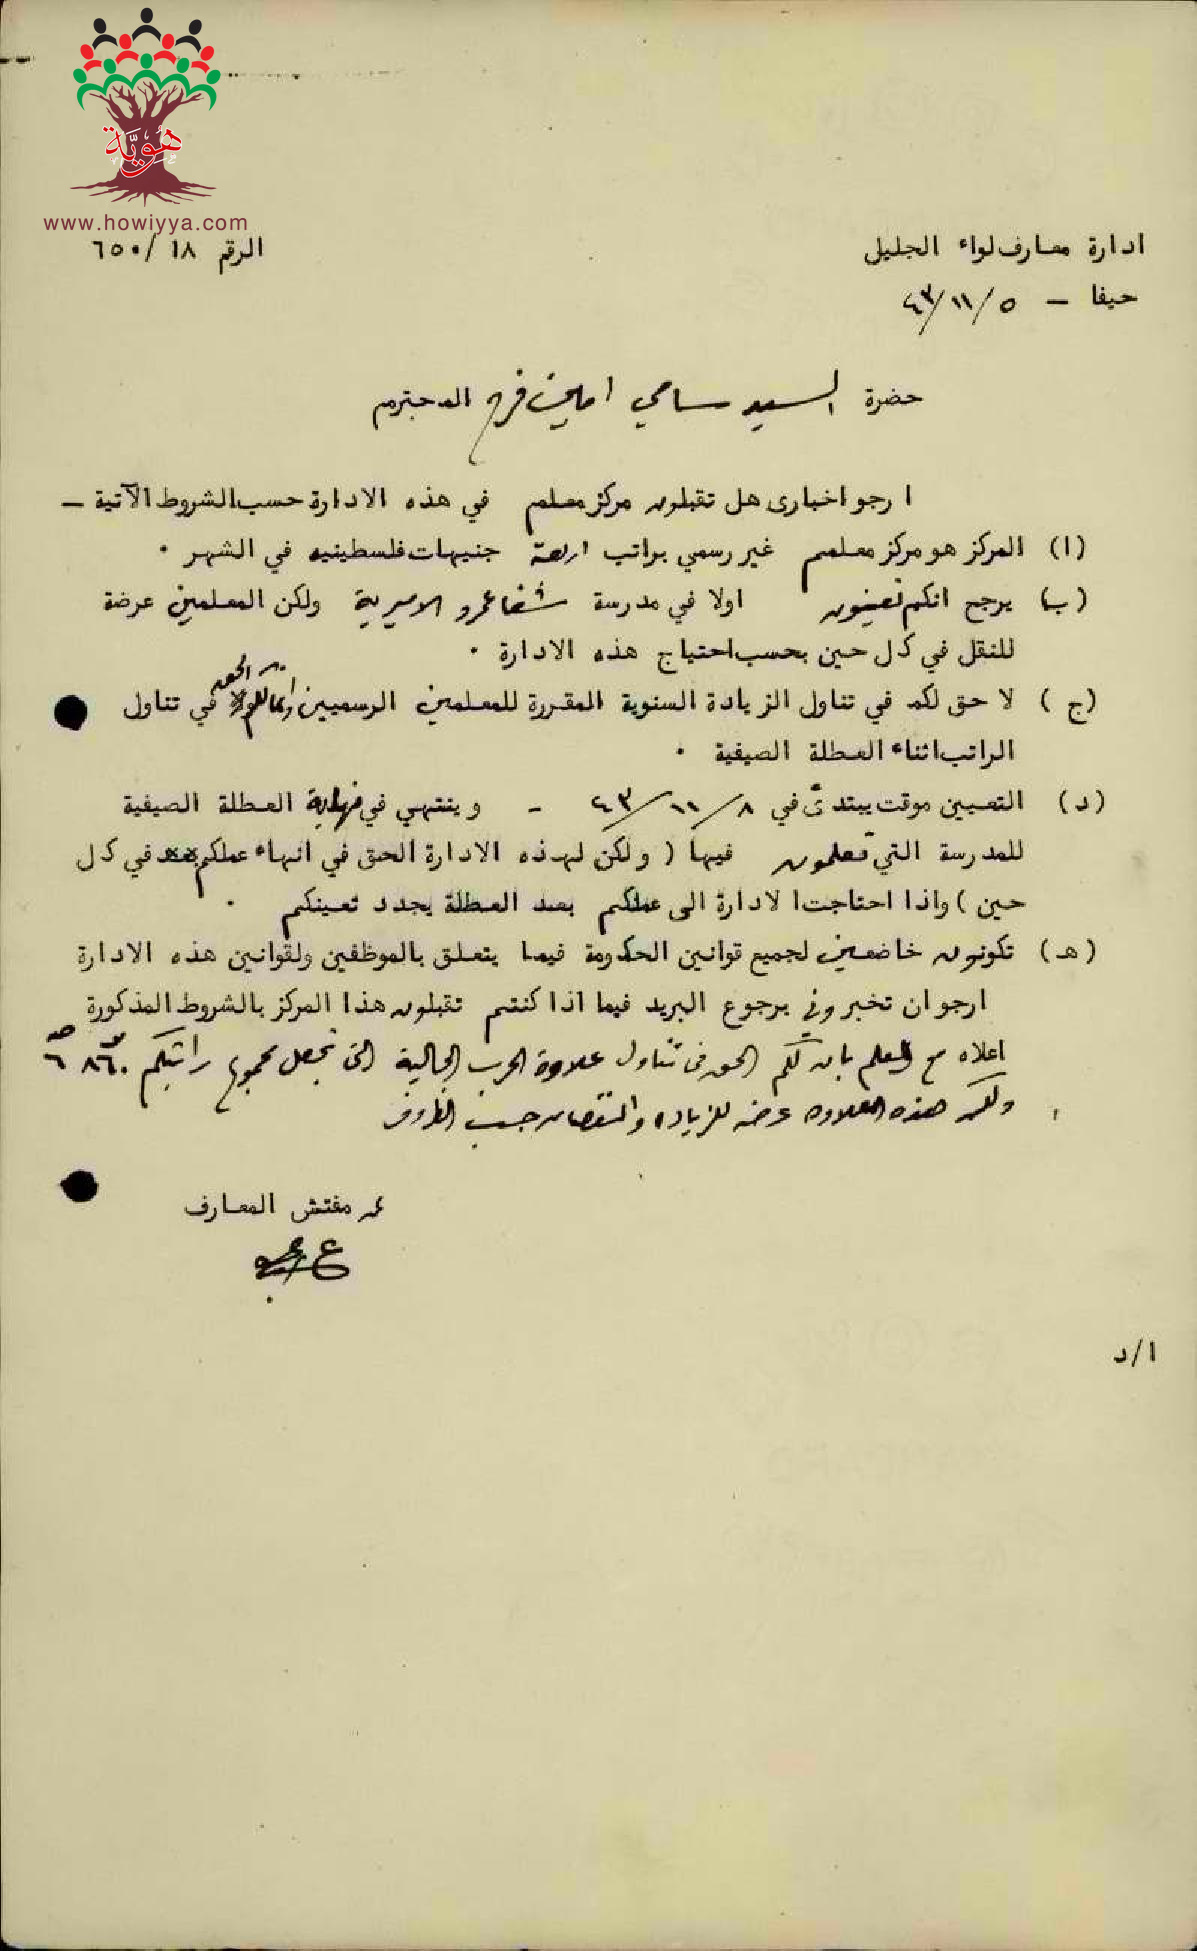 هوية
www.howiyya.com
ادارة معارف لواء الجليل
الرقم ١٨ / ٦٥٠
حيفا – ٥ /١١ /٤٣
حضرة السيد سامي امين فرح المحترم
ارجو اخباري هل تقبلون مركز معلم في هذه الادارة حسب الشروط الآتية –
(ا) المركز هو مركز معلم غير رسمي براتب اربعة جنيهات فلسطينيه في الشهر ٠
(ب) يرجح انكم تعينون اولا في مدرسة شفاعمرو الاميرية ولكن المعلمين عرضة
للنقل في كل حين بحسب احتياج هذه الادارة ٠
(ج) لا حق لكم في تناول الزيادة السنوية المقررة للمعلمين الرسميين وانما لكم الحق في تناول
الراتب اثناء العطلة الصيفية ٠
(د) التعيين موقت يبتدئ في ٨ /١١ /٤٣ – وينتهي في نهاية العطلة الصيفية
للمدرسة التي تعلمون فيها ( ولكن لهذه الادارة الحق في انهاء عملكم في كل
حين ) واذا احتاجت الادارة الى عملكم بعد العطلة يجدد تعيينكم ٠
(هـ) تكونون خاضعين لجميع قوانين الحكومة فيما يتعلق بالموظفين ولقوانين هذه الادارة
ارجو ان تخبروني برجوع البريد فيما اذا كنتم تقبلون هذا المركز بالشروط المذكورة
اعلاه مع العلم بان لكم الحق في تناول علاوة الحرب الحالية التي تجعل مجموع راتبكم
ولكن هذه العلاوه عرضه للزياده والنقصان حسب الظروف
عن مفتش المعارف
ا/د